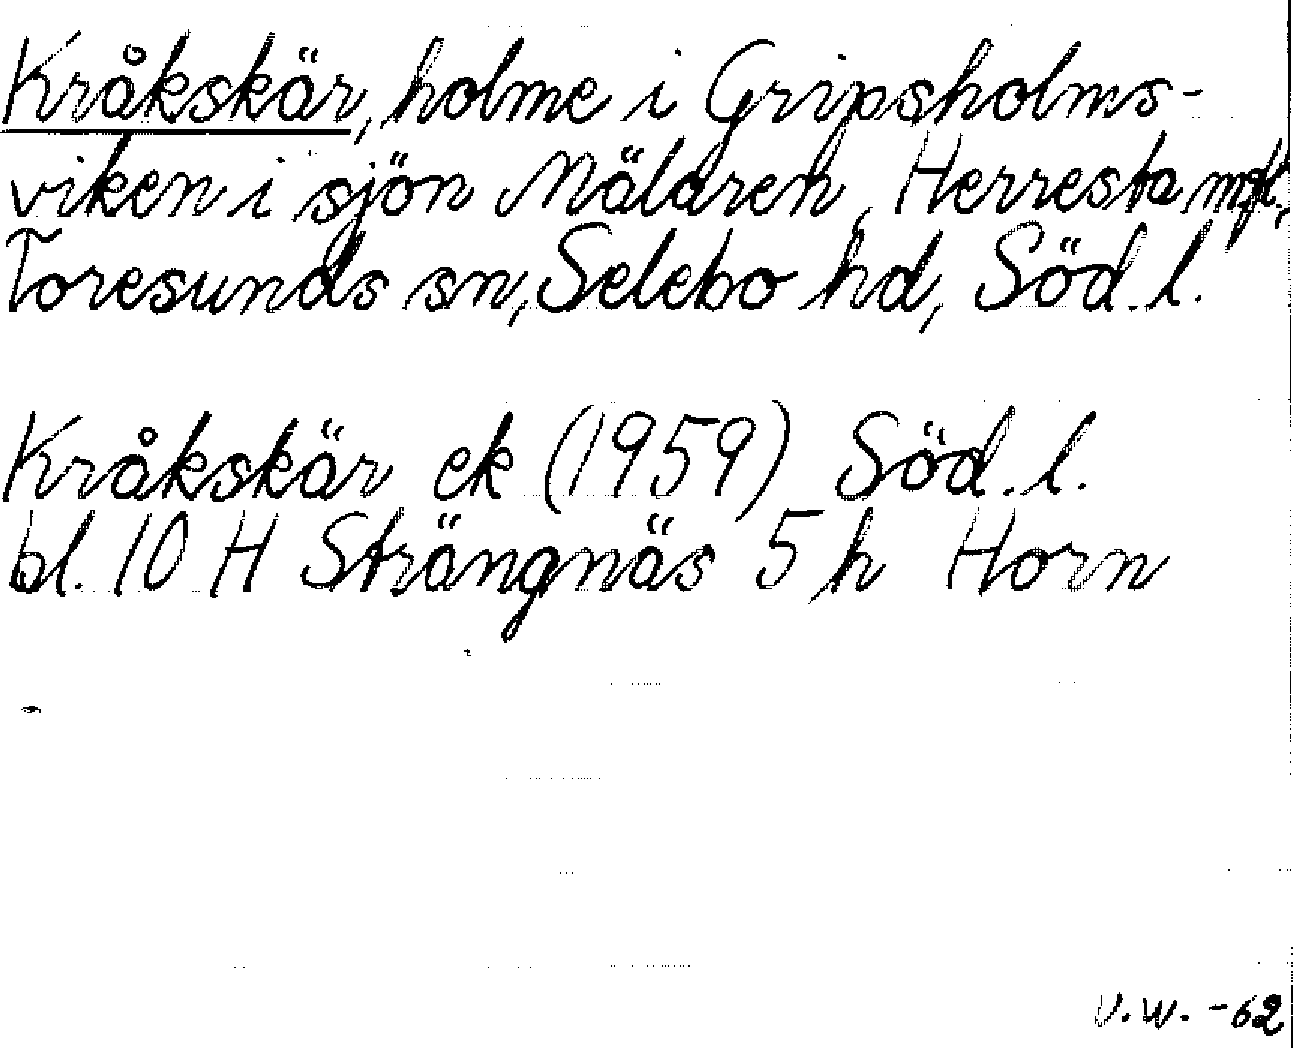 Kråkskär, holme i Gripsholms-
viken i sjön Mälaren, Herresta mfl.,
Toresunds sn, Selebo hd, Söd. l.
Kråkskär ek (1959) Söd. l.
bl. 10 H Strängnäs 5 h Horn
V.W. -62